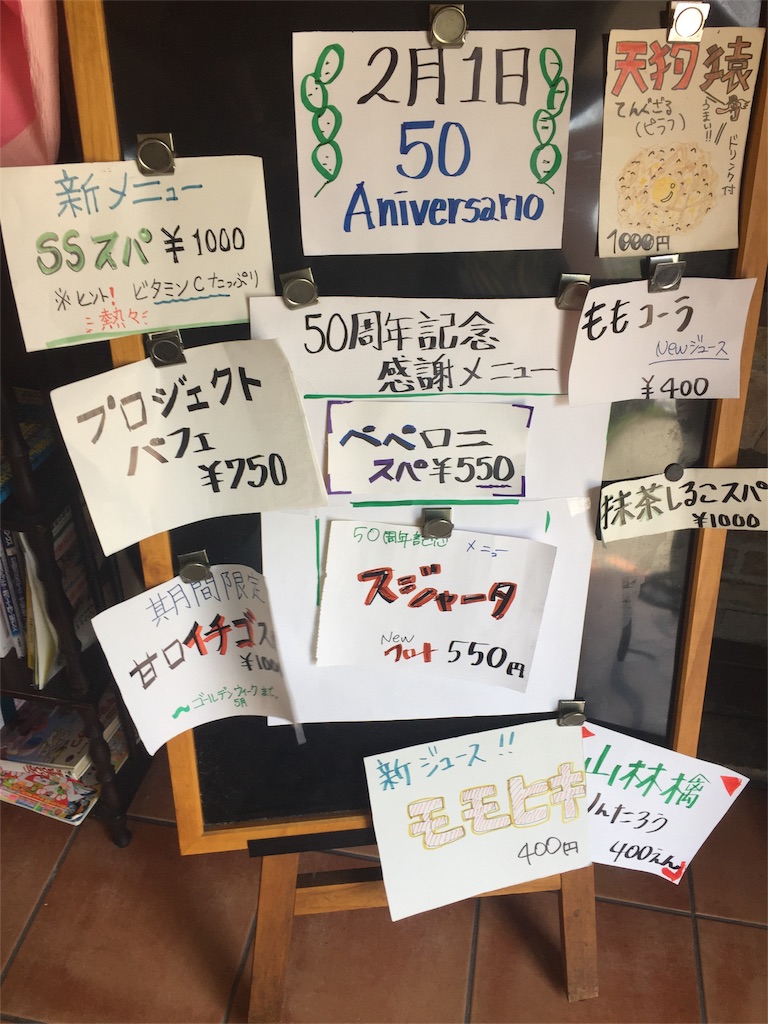 2月1日
50
Aniversario
天狗猿
てんぐざる
(ピラフ)
うまい!!
ドリンク付
1000円
新メニュー
SSスパ ¥1000
※ヒント! ビタミンCたっぷり
熱々
50周年記念
感謝メニュー
ももコーラ
Newジュース
¥400
プロジェクト
パフェ
¥750
ペペロニ
スパ¥550
抹茶しるこスパ
¥1000
50周年記念
メニュー
スジャータ
New
フロート 550円
期間限定
甘口イチゴス
¥100
〜ゴールデンウィークまで。
5月
新ジュース!!
モモヒキ
400円
山林檎
りんたろう
400えん